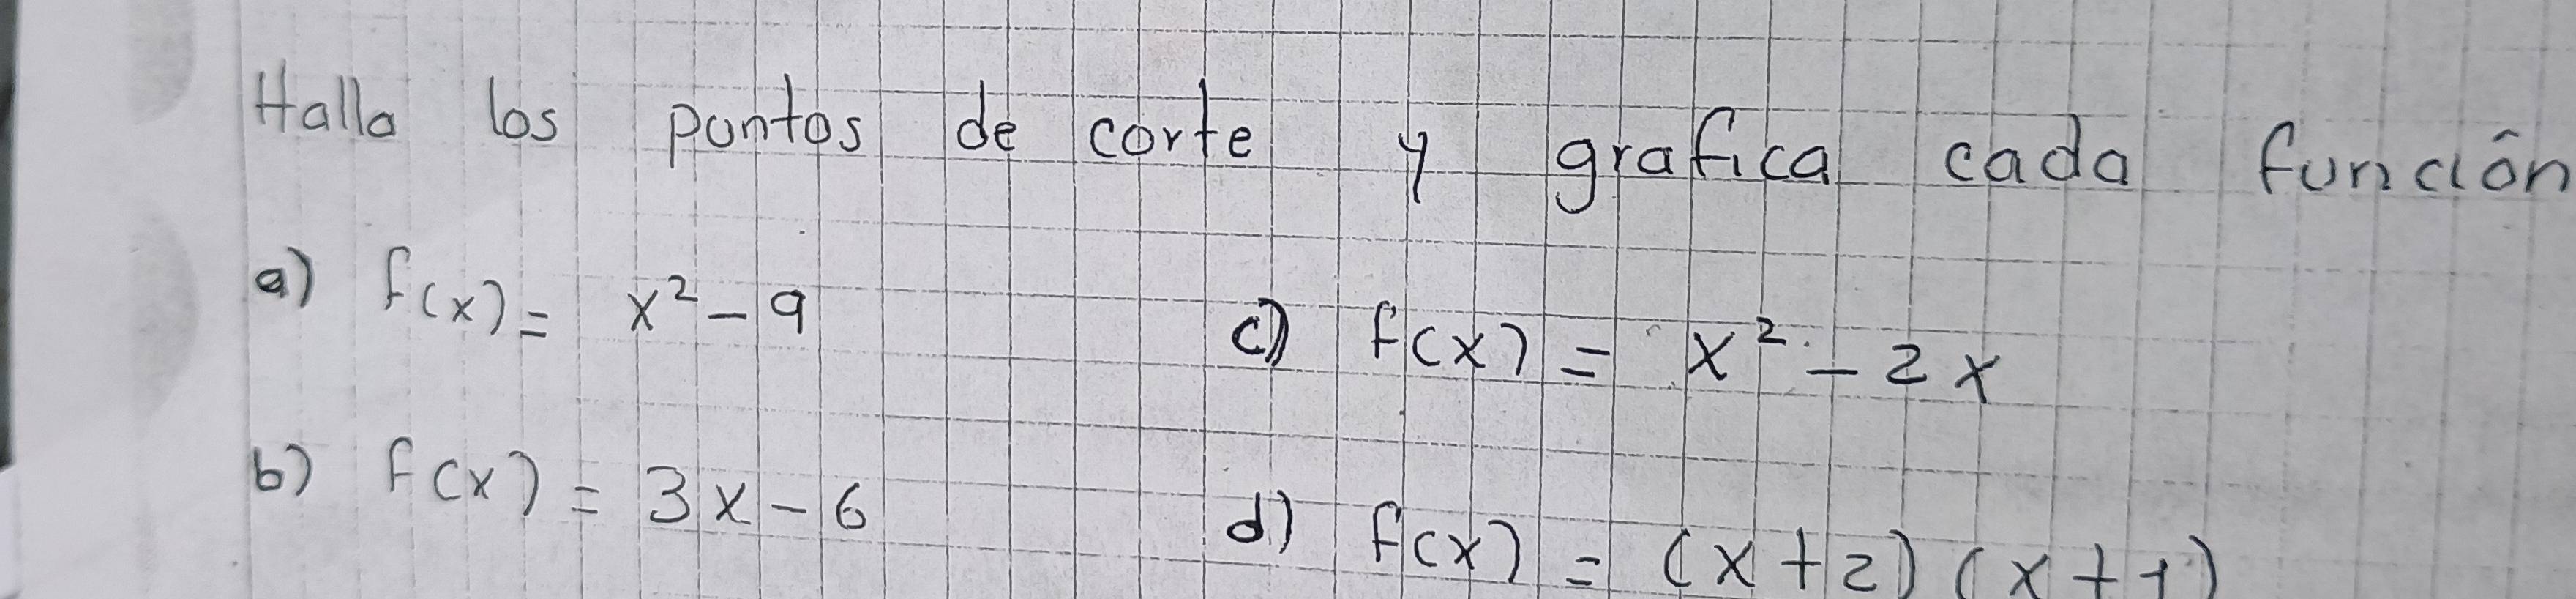 Halla los puntos de corte y grafica cada función
a) f(x) = x² - 9
c) f(x) = x² - 2x
b) f(x) = 3x - 6
d) f(x) = (x+2) (x+1)